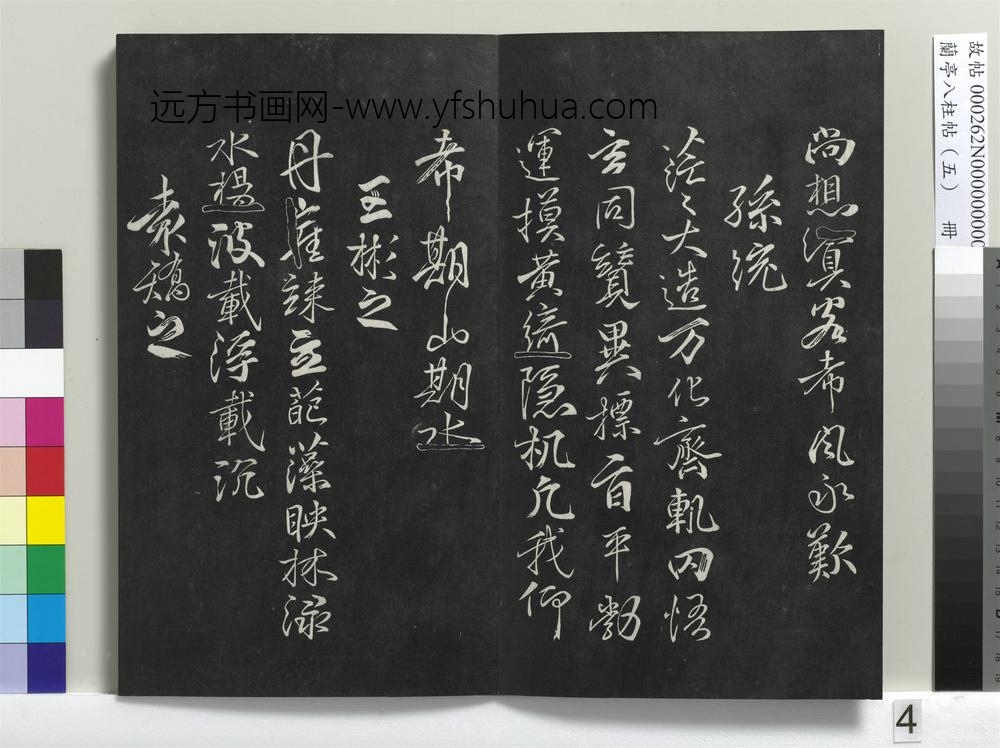 故帖 000262N000000000
蘭亭八柱帖（五） 冊
远方书画网-www.yfshuhua.com
尚想嘉客希風永歎
孫統
茫茫大造万化齊軌罔悟
玄同競異標旨平勃
運摸黃綺隐机凡我仰
希期山期水
王彬之
丹崖竦立葩藻映林渌
水楊波載浮載沉
袁嶠之
4